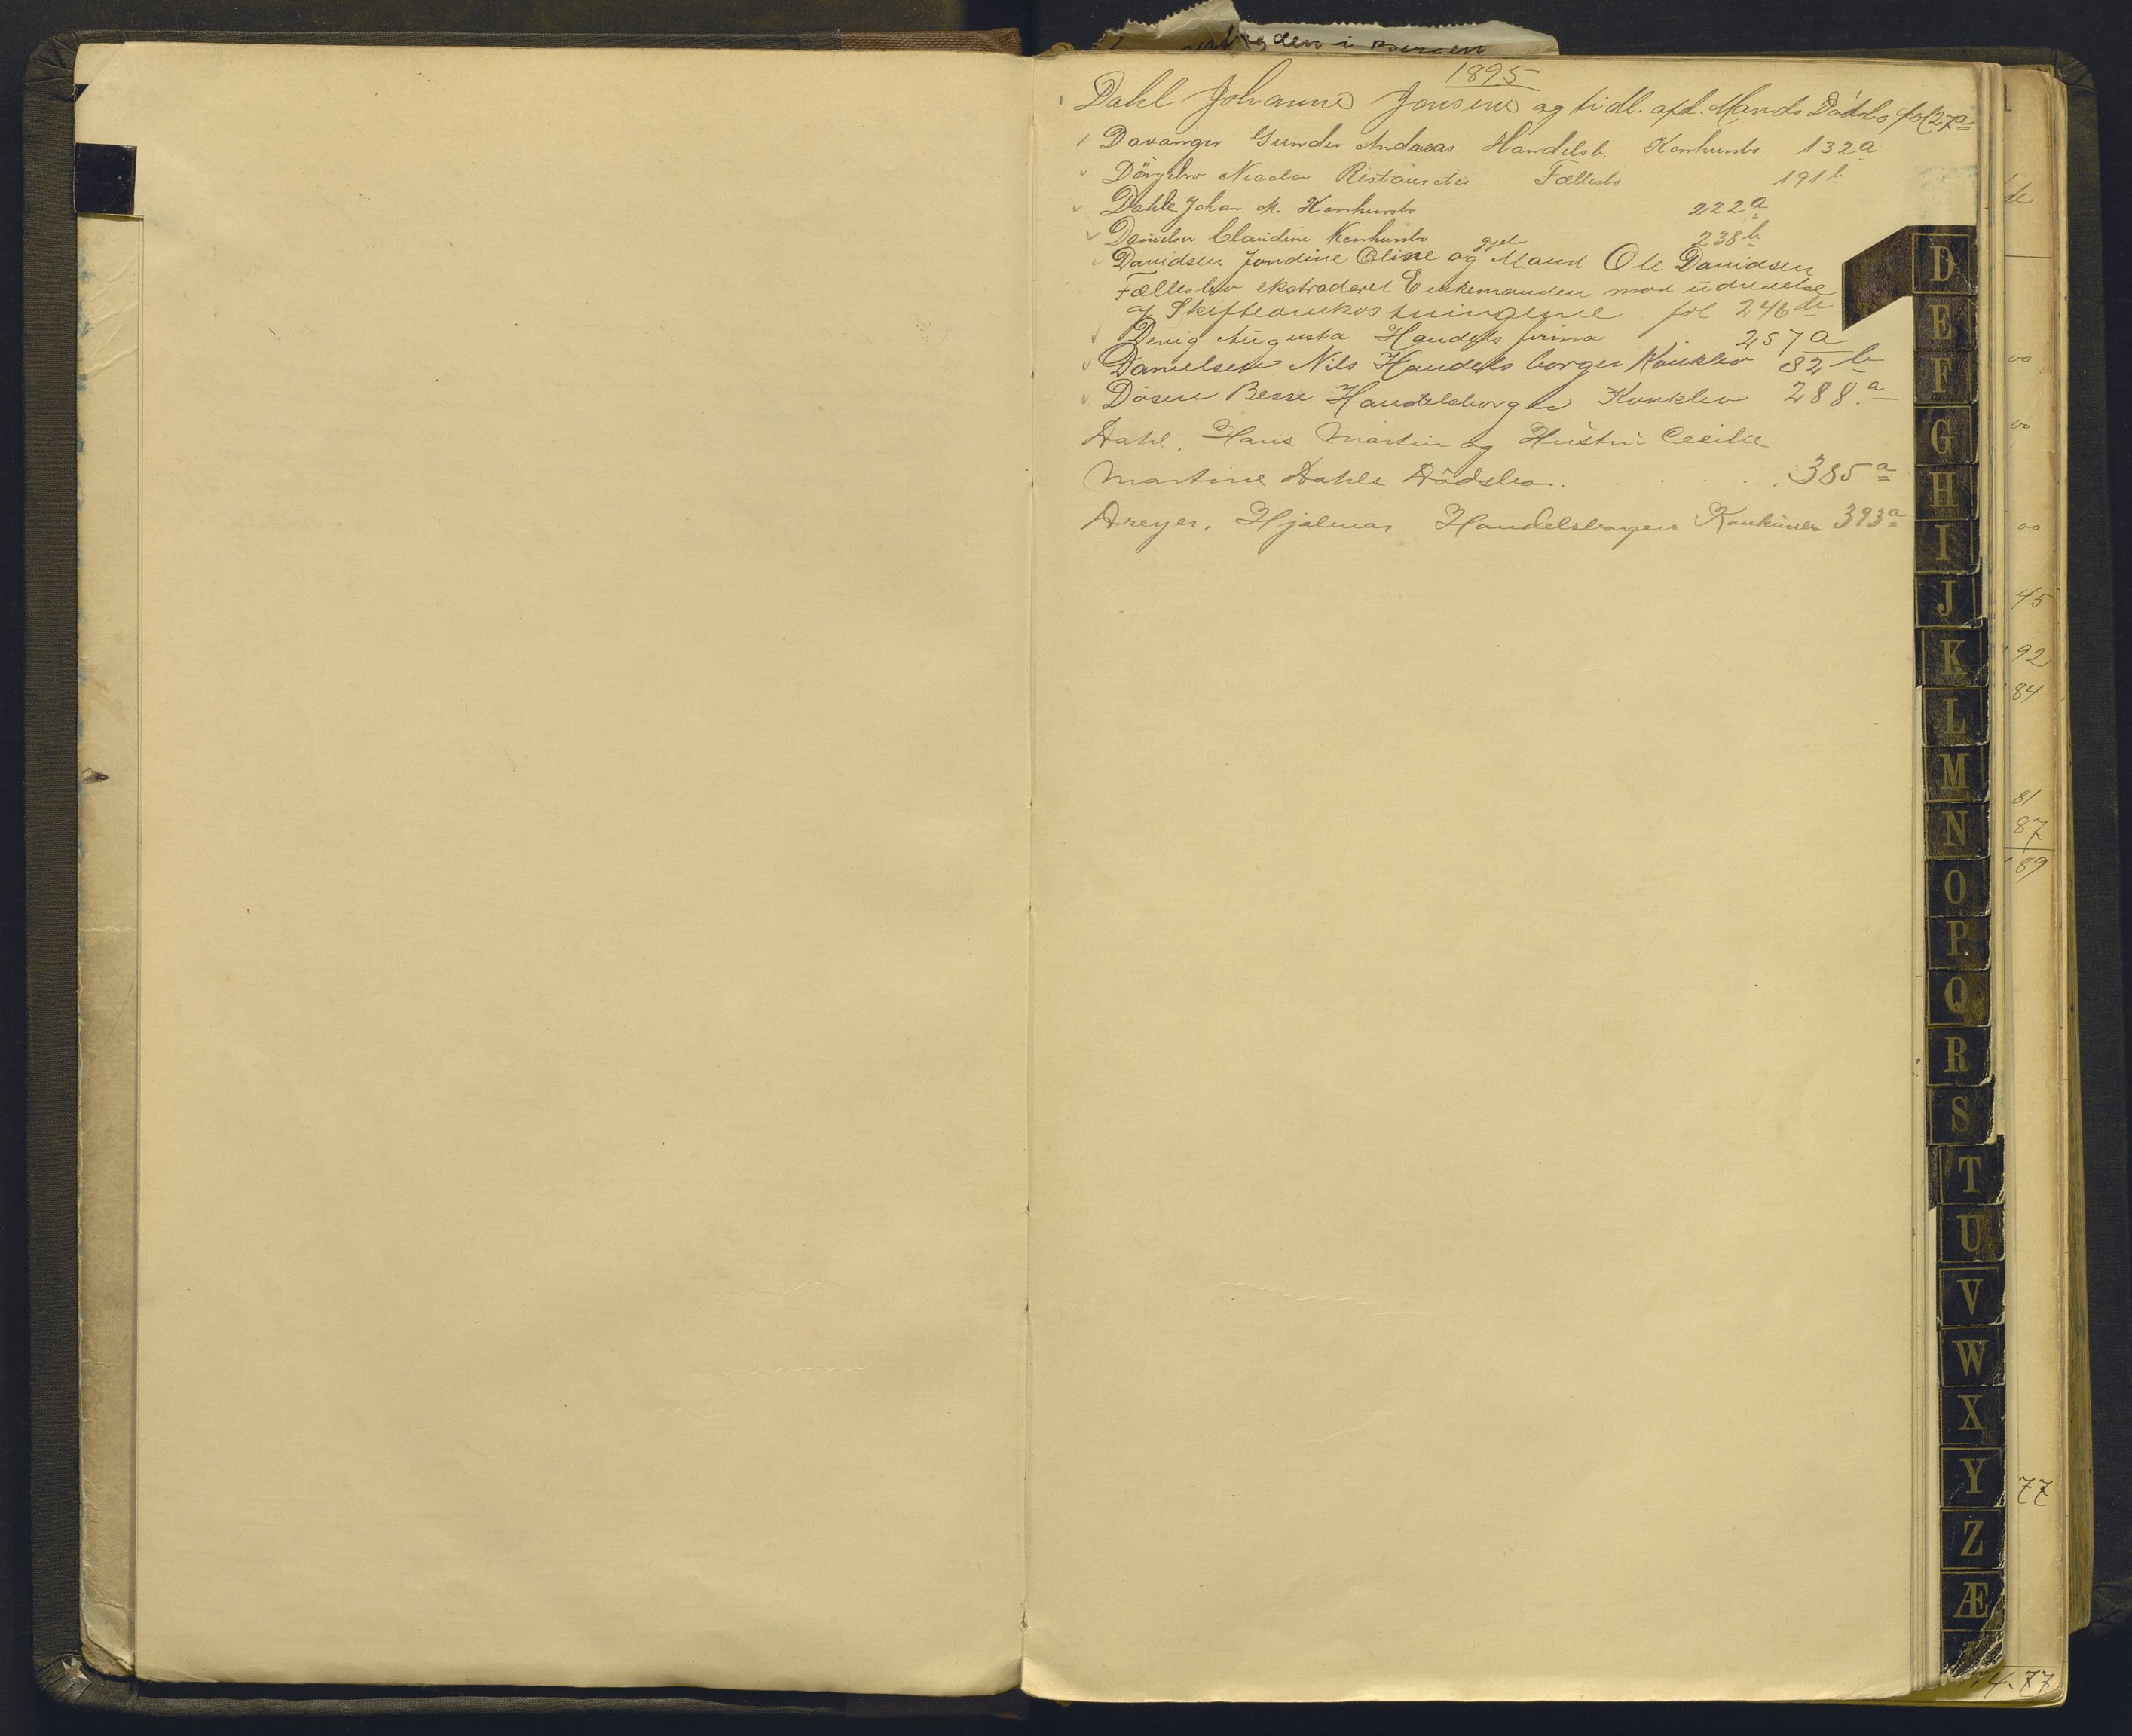 den i Bergen
1895
Dahl Johanne Jensine og tidl. afd. Mands Dödsbo fol 27a
Davanger Gunder Andreas Handelsb. Konkursbo 132a
Nicolai Fællesbo 191b
Dahle Johan M. Konkursbo 222a
Danielsen Claudine Konkursbo 238b
Davidsen Jondine Oline og gjel. Mand Ole Davidsen
Fællesbo ekstraderet Enkemanden mod udredelse
af Skifteomkostningerne fol 246
Augusta Handels firma 257a
Danielsen Nils Handelsborger Konkbo 82b
Dösen Besse Handelsborger Konkbo 288a
Dahl, Hans Martin og Hustru Cecilie
Martine Dahls Dödsbo. . . . . 385a
Dreyer, Hjalmar Handelsborger Konkursbo 393a
D
E
F
G
H
I
J
K
L
M
N
O
P
Q
R
S
T
U
V
W
X
Y
Z
Æ
00
00
00
45
92
84
81
87
89
77
74.77